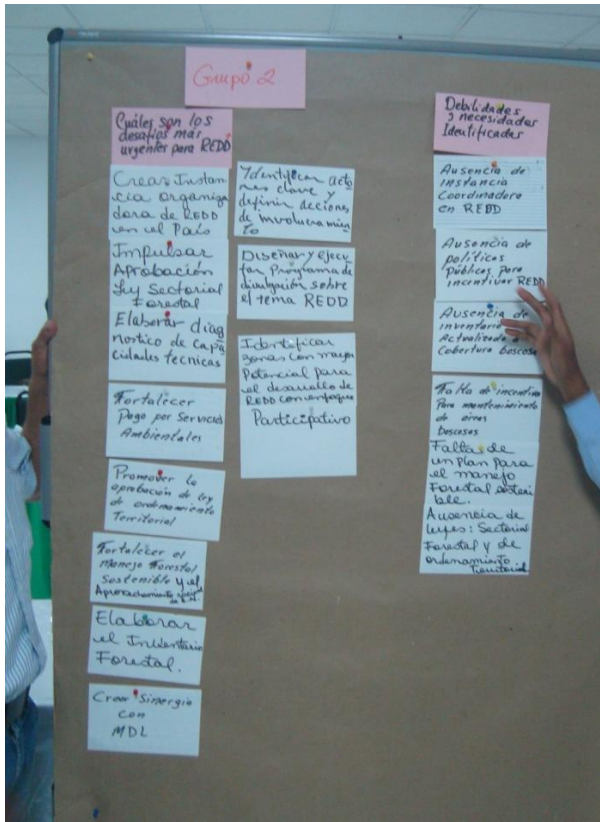 Grupo 2
Cuáles son los
desafios más
urgentes para REDD
Crear Instan
cia organiza
dora de REDD
en el País
Impulsar
Aprobación
Ley Sectorial
Forestal
Elaborar diag
nostico de capa
cidades tecnicas
Fortalecer
Pago por Servicios
Ambientales
Promover la
aprobación de ley
de ordenamiento
Territorial
Fortalecer el
Manejo Forestal
Sostenible y el
Aprovechamiento
Elaborar
el Inventario
Forestal.
Crear Sinergia
con
MDL
Identificar acto
res clave y
definir acciones
de involucramien
to
Diseñar y ejecu
tar Programa de
divulgación sobre
el tema REDD
Identificar
zonas con mayor
Potencial para
el desarrollo de
REDD con enfoque
Participativo
Debilidades
y necesidades
Identificadas
Ausencia de
instancia
Coordinadora
en REDD
Ausencia de
políticas
Públicas para
incentivar REDD
Ausencia de
inventario
Actualizado
Cobertura boscosa
Falta de incentivo
Para mantenimiento
de áreas
Boscosas
Falta de
un plan para
el manejo
Forestal sosteni
ble.
Ausencia de
leyes: Sectorial
Forestal y de
ordenamiento
Territorial